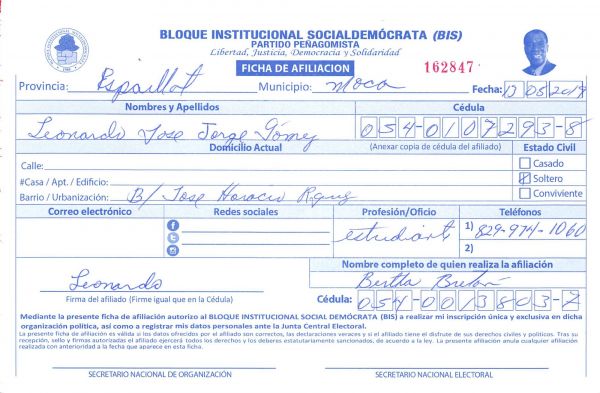 BLOQUE INSTITUCIONAL SOCIALDEMÓCRATA (BIS)
PARTIDO PEÑAGOMISTA
Libertad, Justicia, Democracia y Solidaridad
FICHA DE AFILIACION
162847
Provincia: Espaillat Municipio: Moca Fecha: 13 05 2019
Nombres y Apellidos Cédula
Leonardo Jose Jorge Gómez 054-0107293-8
Domicilio Actual (Anexar copia de cédula del afiliado) Estado Civil
Calle: Casado
#Casa / Apt. / Edificio: Soltero
Barrio / Urbanización: B/ Jose Horacio Conviviente
Correo electrónico Redes sociales Profesión/Oficio Teléfonos
estudiante 1) 829-974-1060
2)
Nombre completo de quien realiza la afiliación
Leonardo Bertha Breton
Firma del afiliado (Firme igual que en la Cédula) Cédula: 054-0013803-2
Mediante la presente ficha de afiliación autorizo al BLOQUE INSTITUCIONAL SOCIAL DEMÓCRATA (BIS) a realizar mi inscripción única y exclusiva en dicha
organización política, así como a registrar mis datos personales ante la Junta Central Electoral.
La presente ficha de afiliación es válida si los datos ofrecidos por el afiliado son correctos, las declaraciones veraces y si el afiliado tiene el disfrute de sus derechos civiles y políticos. Tras su
recepción, sello y firmas autorizadas el afiliado ejercerá todos los derechos y los deberes estatutariamente sancionados, de acuerdo a la ley. La presente afiliación anula cualquier afiliación
realizada con anterioridad a la fecha que aparece en esta ficha.
SECRETARIO NACIONAL DE ORGANIZACIÓN SECRETARIO NACIONAL ELECTORAL